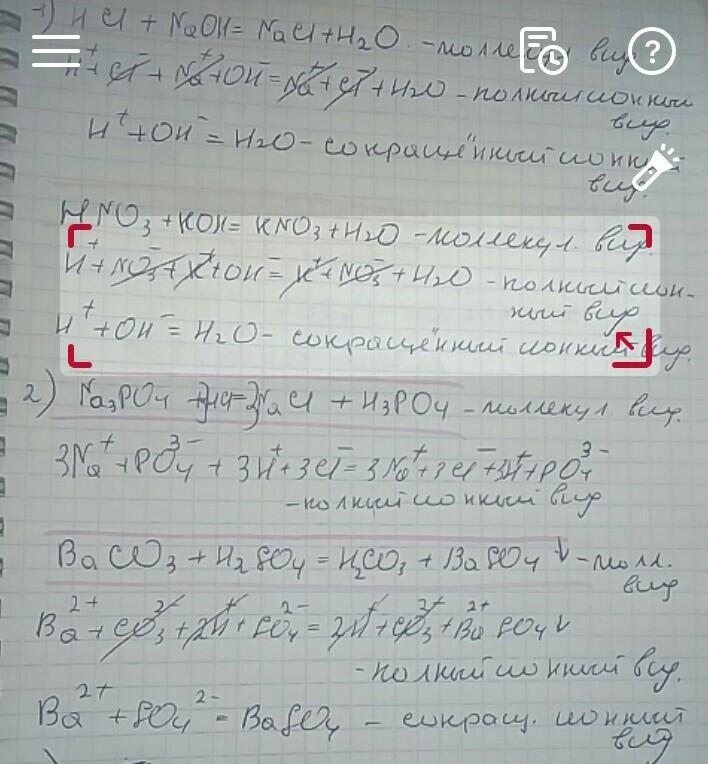 1) HCl + NaOH = NaCl + H₂O - моллекул вид
H⁺ + Cl⁻ + Na⁺ + OH⁻ = Na⁺ + Cl⁻ + H₂O - полный ионный
вид.
H⁺ + OH⁻ = H₂O - сокращённый ионный
вид.
HNO₃ + KOH = KNO₃ + H₂O - моллекул. вид.
H⁺ + NO₃⁻ + K⁺ + OH⁻ = K⁺ + NO₃⁻ + H₂O - полный ион-
ный вид
H⁺ + OH⁻ = H₂O - сокращённый ионный вид.
2) Na₃PO₄ + 3HCl = 3NaCl + H₃PO₄ - моллекул вид.
3Na⁺ + PO₄³⁻ + 3H⁺ + 3Cl⁻ = 3Na⁺ + 3Cl⁻ + 3H⁺ + PO₄³⁻
- полный ионный вид
BaCO₃ + H₂SO₄ = H₂CO₃ + BaSO₄ ↓ - молл.
вид
Ba²⁺ + CO₃²⁻ + 2H⁺ + SO₄²⁻ = 2H⁺ + CO₃²⁻ + Ba²⁺SO₄↓
- полный ионный вид.
Ba²⁺ + SO₄²⁻ = BaSO₄ - сокращ. ионный
вид